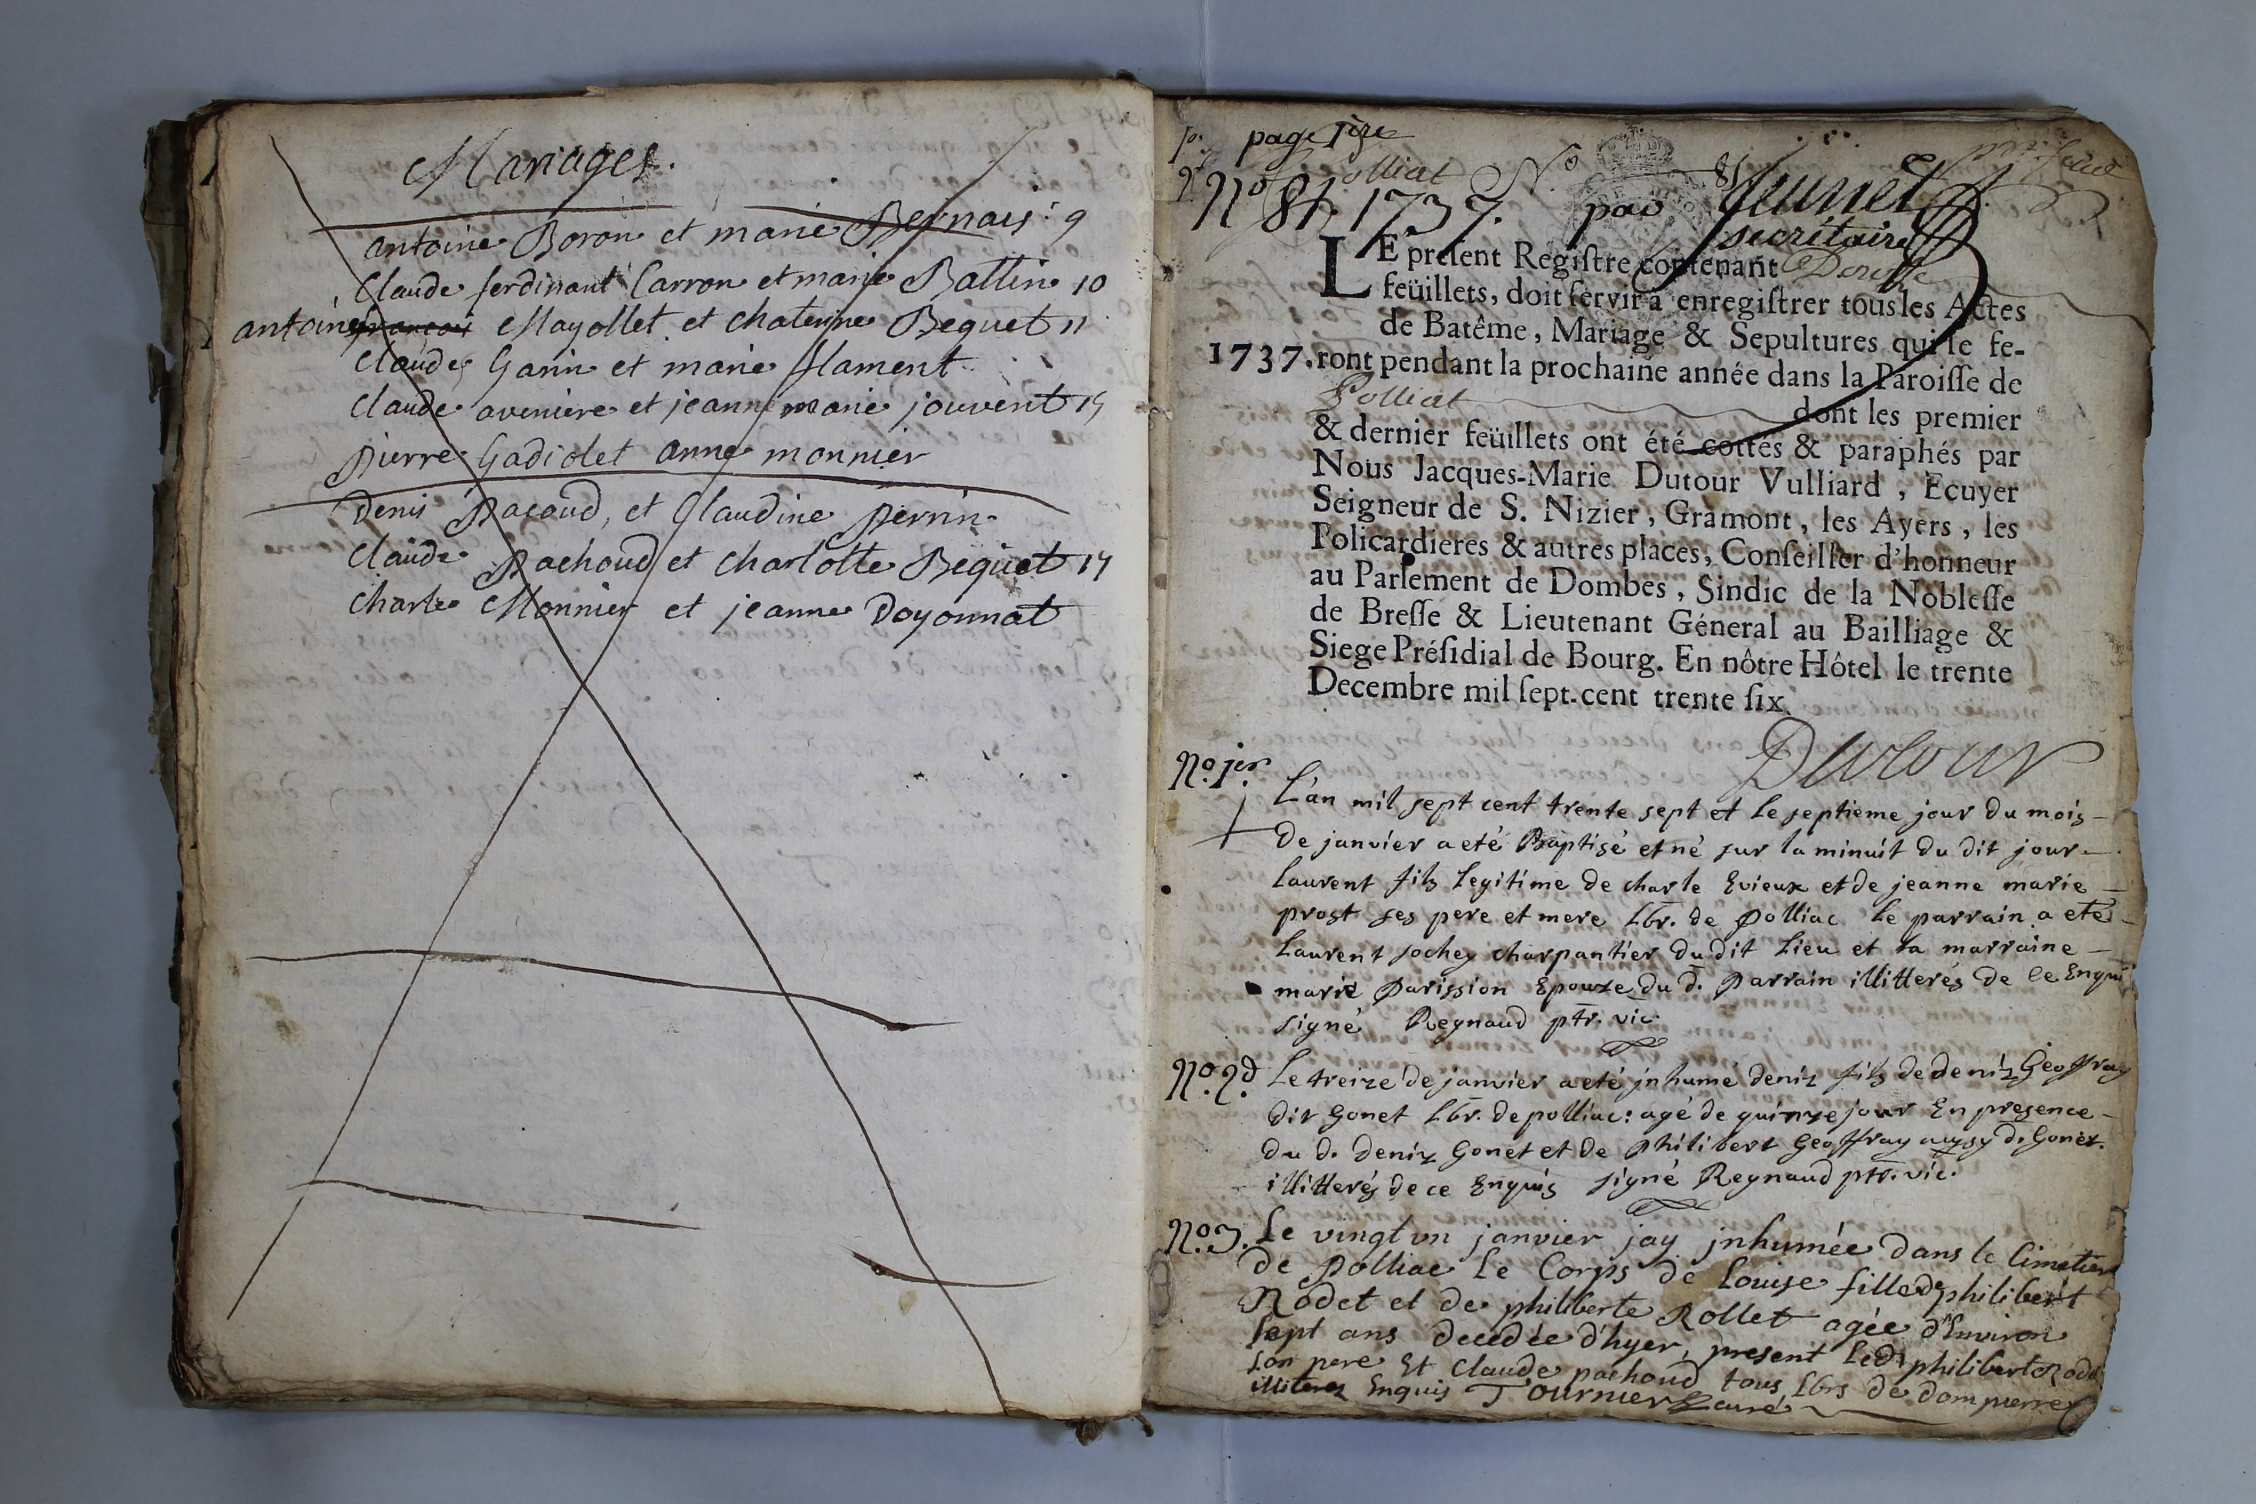 Mariages.
antoine Boron et marie Bernais 9
Claude ferdinant Carron et marie Battin 10
antoine françois Mayollet et chaterine Bequet 11
Claude Garin et marie flament
Claude aveniere et jeanne marie jouvent 15
pierre Gadiolet anne monnier
Denis Pacaud, et Claudine perrin
Claude Pachoud et Charlotte Bequet 17
Charle Monnier et jeanne Doyonnat
page 1ere
Polliat No 81
No 81. 1737. par
secrétaire
LE present Regiſtre contenant Douſſe
feüillets, doit ſervir à enregiſtrer tous les Actes
de Batême, Mariage & Sepultures qui ſe fe-
1737. ront pendant la prochaine année dans la Paroiſſe de
Polliat dont les premier
& dernier feüillets ont été cottés & paraphés par
Nous Jacques-Marie Dutour Vulliard, Ecuyer
Seigneur de S. Nizier, Gramont, les Ayers, les
Policardieres & autres places, Conſeiller d'honneur
au Parlement de Dombes, Sindic de la Nobleſſe
de Breſſe & Lieutenant Géneral au Bailliage &
Siege Préſidial de Bourg. En nôtre Hôtel le trente
Decembre mil ſept-cent trente ſix.
Dutour
No. 1er. L'an mil sept cent trente sept et le septieme jour du mois
De janvier a eté Baptisé et né sur la minuit du dit jour
laurent fils legitime de charle Evieux et de jeanne marie
prost ses pere et mere lbr. de polliac le parrain a eté
laurent sochey charpantier du dit lieu et la marraine
marie parission Epouze du d. parrain illitterés de ce Enquis
signé Regnaud ptr. vic.
No. 2d. Le treize de janvier a eté jnhumé deniz fils de deniz Geoffray
dit gonet lbr. de polliac: agé de quinze jour En presence
du d. deniz gonet et de philibert Geoffray aussy d. gonet.
illitterés de ce Enquis signé Regnaud ptr. vic.
No. 3. Le vingt un janvier jay jnhumée dans le Cimetiere
de polliac le Corps de louise fille de philibert
Rodet et de philiberte Rollet agée d'Environ
sept ans decedée d'hyer, present led. philibert Rodet
son pere Et Claude pachoud tous lbrs de dompierre
illiterez Enquis Tournier curé